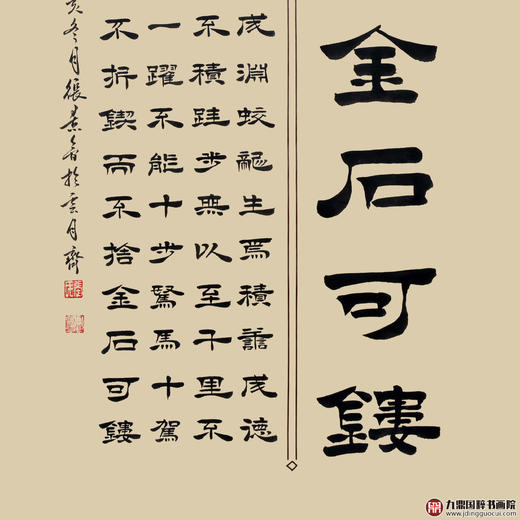 金石可鏤
成淵蛟龍生焉積善成德
不積跬步無以至千里不
一躍不能十步駑馬十駕
不折鍥而不捨金石可鏤
亥冬月張於雲月齋
九鼎国辞书画院
www.jdingguocui.com